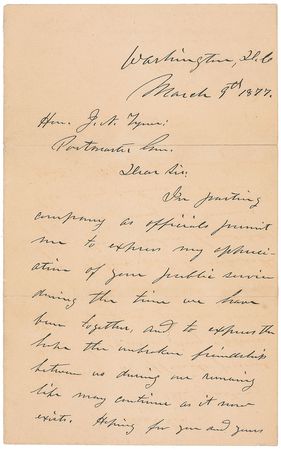 Washington, D.C.
March 9th 1877.
Hon. J. N. Tyner;
Postmaster Gen.
Dear Sir:
In parting
company as officials permit
me to express my appreci-
ation of your public service
during the time we have
been together, and to express the
hope the unbroken friendship
between us during our remaining
life may continue as it now
exists. Hoping for you and yours